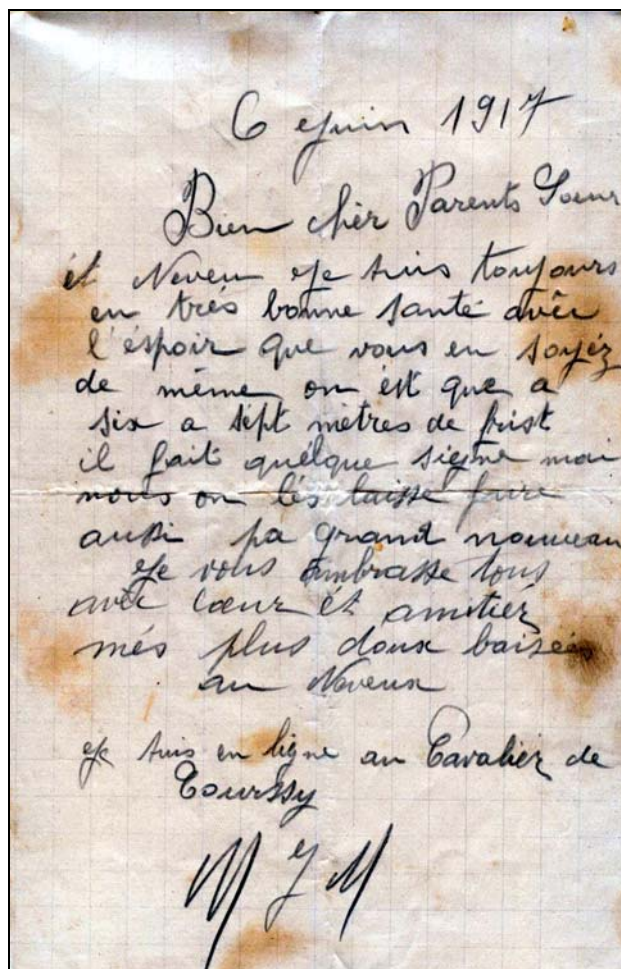 6 juin 1917
Bien chèr Parents Soeur
ét Neveu Je suis toujours
en très bonne santé avêc
l'éspoir que vous en soyéz
de même on ést que a
six a sépt mètres de frist
il fait quélque signe mai
nous on lés laisse faire
aussi pa grand nouveau
Je vous émbrasse tous
avéc coeur ét amitiéz
més plus doux baisées
au Neveux
Je suis en ligne au Cavaliér de
Courssy
M J M